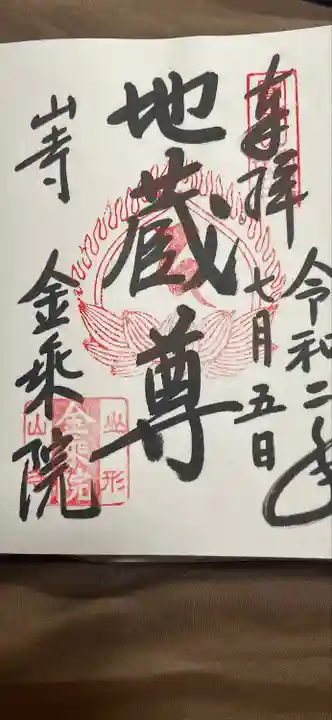 令和二年
奉拝
七月五日
地蔵尊
山寺 金乗院
山形
金乗院
山寺